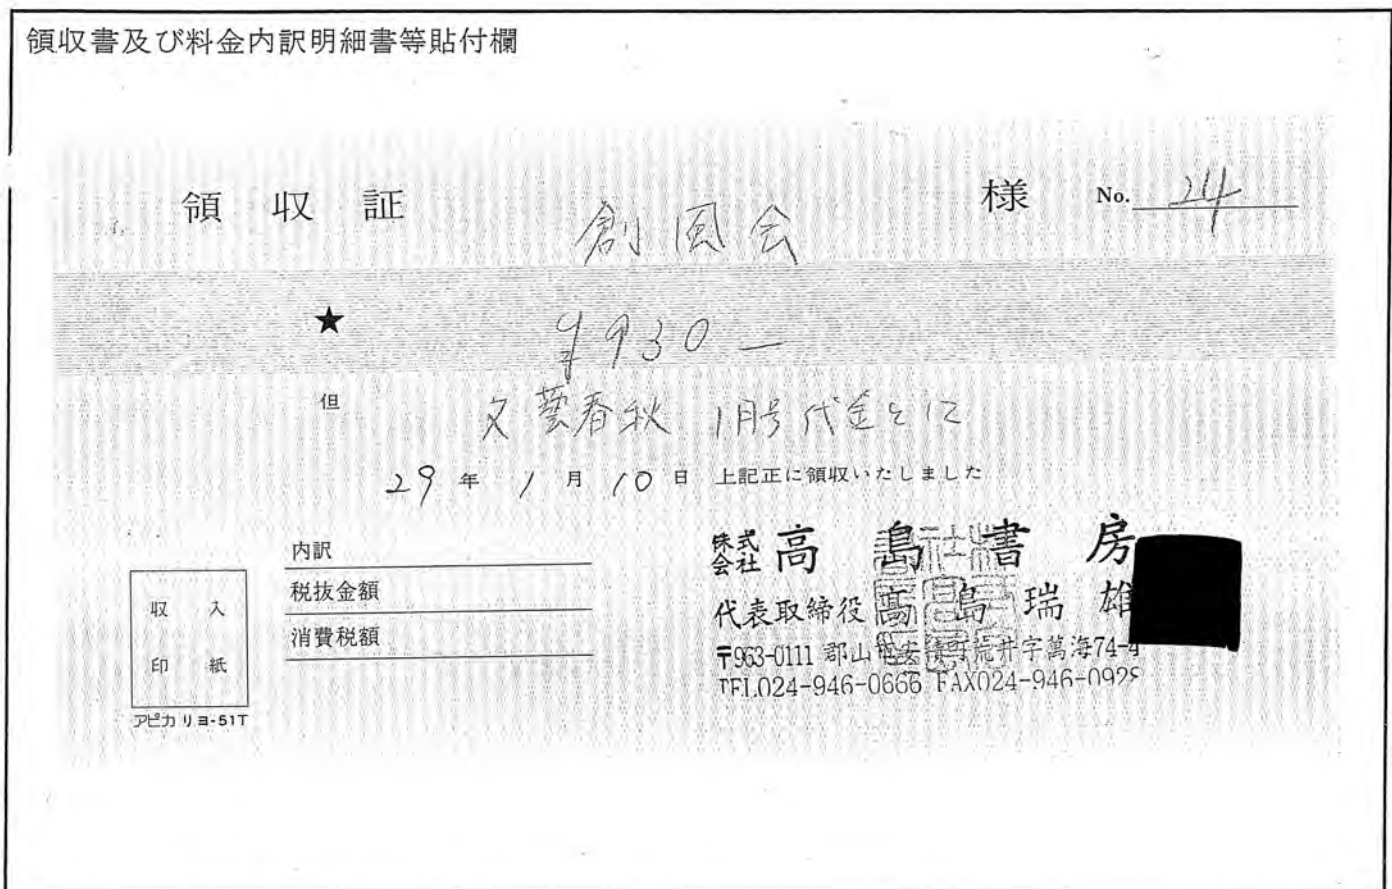 領収書及び料金内訳明細書等貼付欄
領収証 創風会 様 No. 24
★ ¥930—
但 文藝春秋 1月号代金とに
29年1月10日 上記正に領収いたしました
内訳
税抜金額
消費税額
収入
印紙
アピカ リヨ-51T
株式会社 高島書房
代表取締役 高島瑞雄
〒963-0111 郡山市安積町荒井字萬海74-4
TEL024-946-0666 FAX024-946-0928